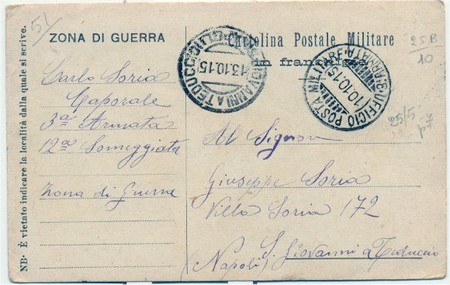 51
ZONA DI GUERRA
Cartolina Postale Militare
in franchigia
25B
10
S. GIOVANNI A TEDUCCIO
13.10.15
UFFICIO POSTA MILITARE
10.10.15
25/5
p7
Carlo Soria
Caporale
3a Armata
12a Someggiata
Zona di Guerra
Al Signor
Giuseppe Soria
Villa Soria 172
S. Giovanni a Teduccio
(Napoli)
NB. È vietato indicare la località dalla quale si scrive.